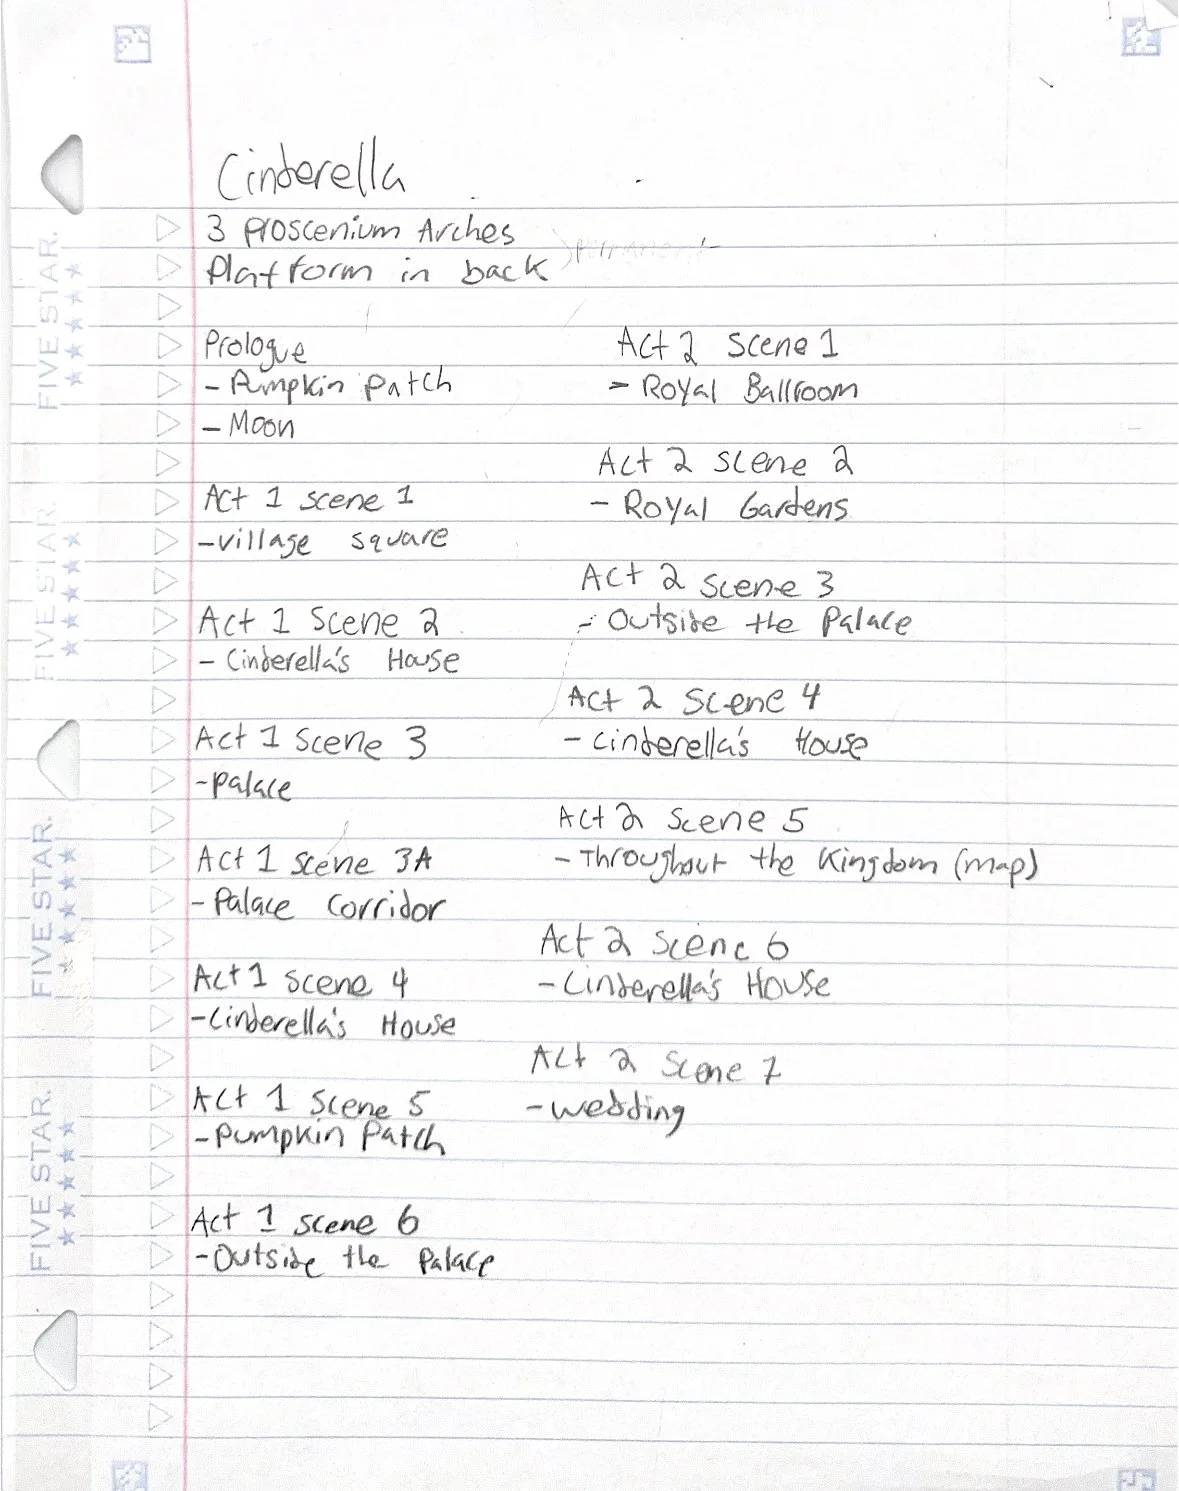 Cinderella
3 Proscenium Arches
Platform in back
Permanent
Prologue
- Pumpkin Patch
- Moon
Act 1 scene 1
- village square
Act 1 Scene 2
- Cinderella's House
Act 1 Scene 3
- palace
Act 1 Scene 3A
- Palace Corridor
Act 1 scene 4
- Cinderella's House
Act 1 Scene 5
- Pumpkin Patch
Act 1 scene 6
- Outside the Palace
Act 2 Scene 1
- Royal Ballroom
Act 2 Scene 2
- Royal Gardens
Act 2 Scene 3
- Outside the Palace
Act 2 Scene 4
- Cinderella's House
Act 2 Scene 5
- Throughout the Kingdom (map)
Act 2 Scene 6
- Cinderella's House
Act 2 Scene 7
- wedding
FIVE STAR.
FIVE STAR.
FIVE STAR.
FIVE STAR.